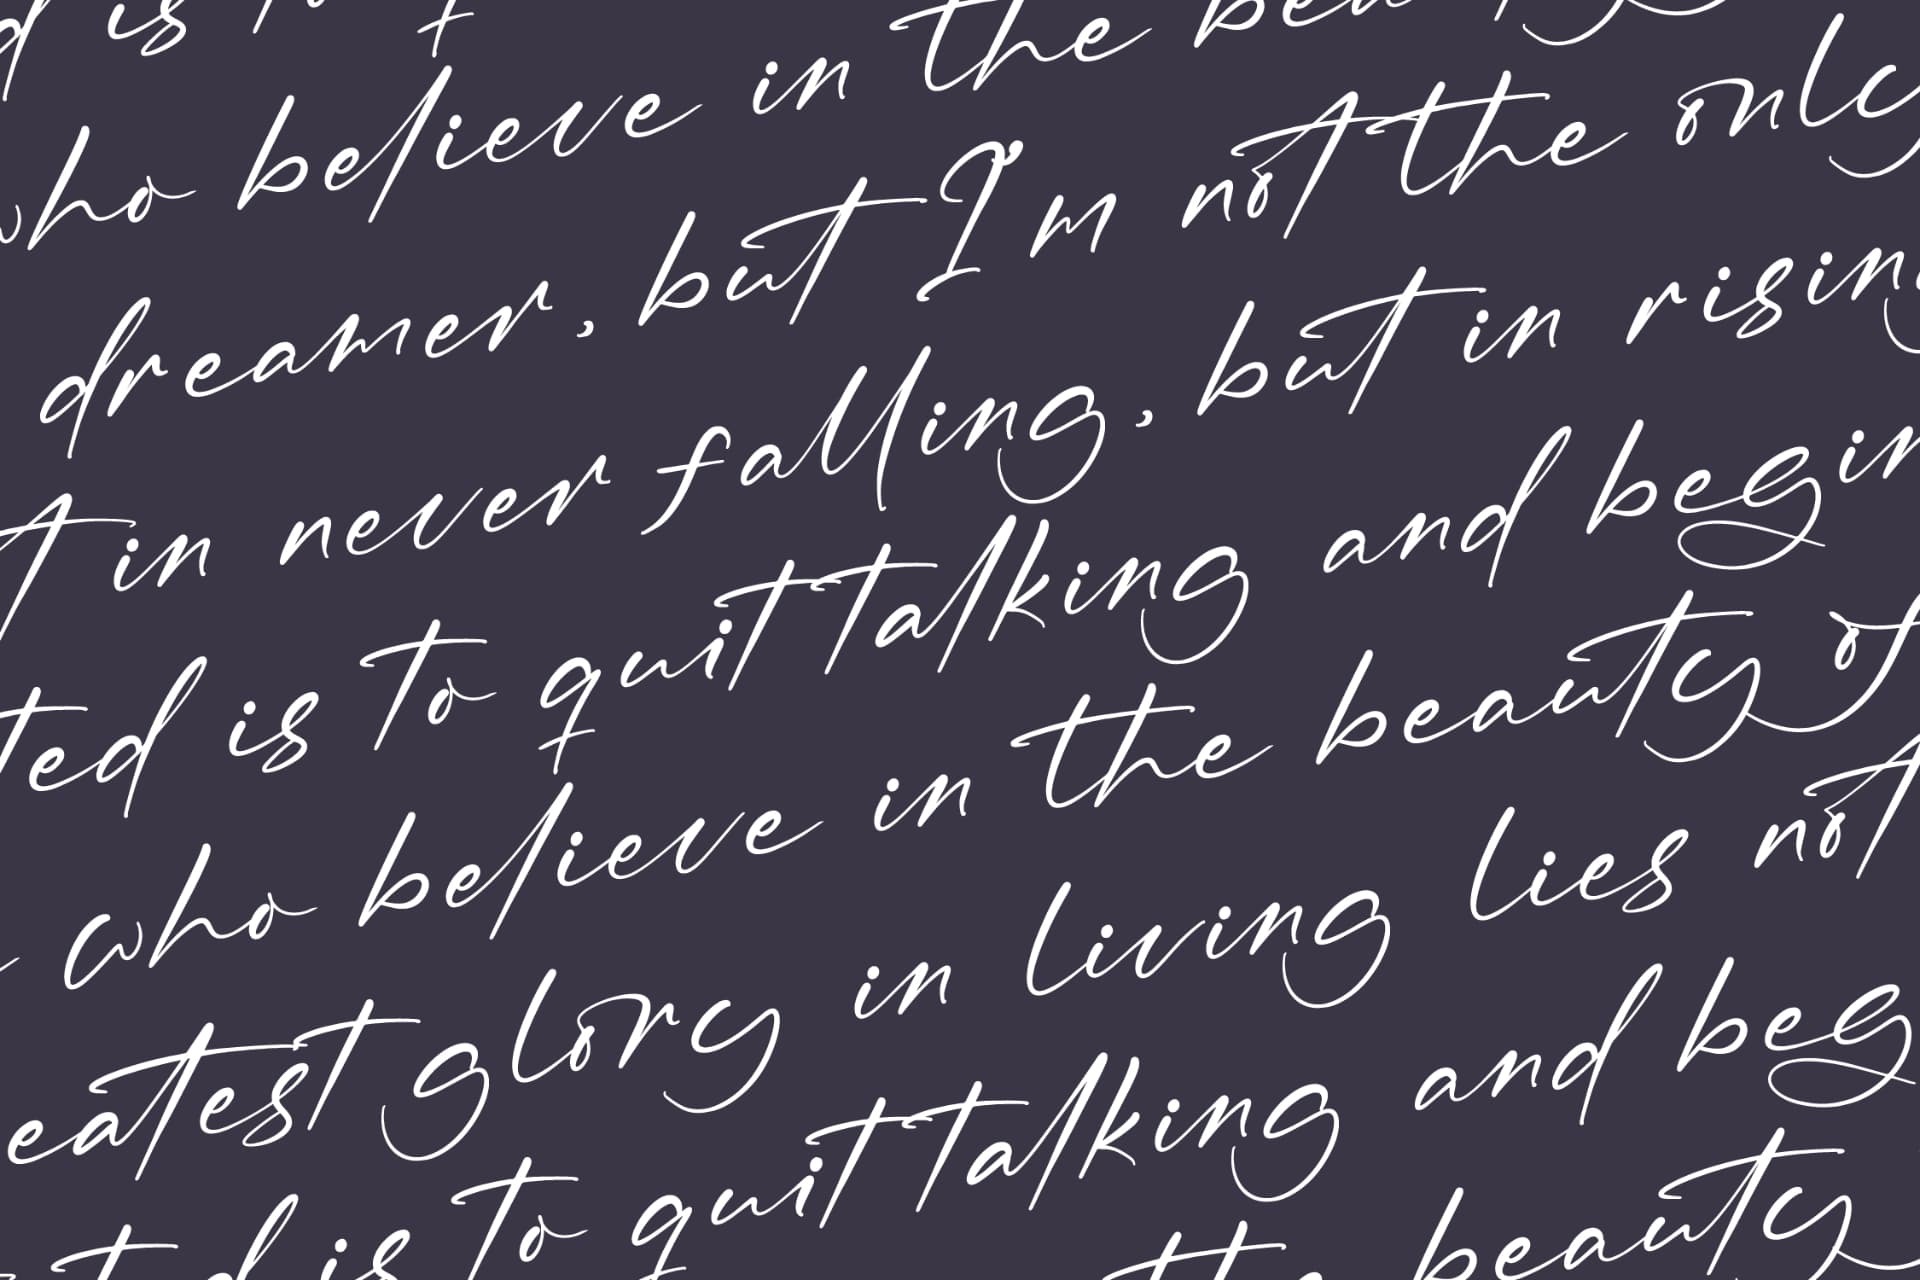 is to
who believe in the
dreamer, but I'm not the only
in never falling, but in rising
ted is to quit talking and begin
who believe in the beauty of
eatest glory in living lies not
is to quit talking and beg
the beauty